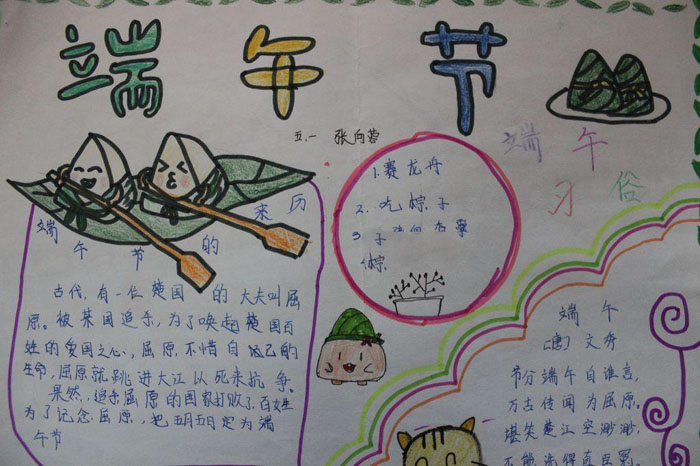 端午节
五.一 张向蓉
端午节的来历
古代,有一位楚国的大夫叫屈
原。被某国追杀,为了唤起楚国百
姓的爱国之心,屈原不惜自己的
生命,屈原就跳进大江以死来抗争。
果然,追杀屈原的国家打败了,百姓
为了记念屈原,把五月五日定为端
午节
1.赛龙舟
2.吃粽子
3
粽.
端午
习俗
端午
(唐)文秀
节分端午自谁言,
万古传闻为屈原。
堪笑楚江空渺渺,
不能洗得直臣冤。